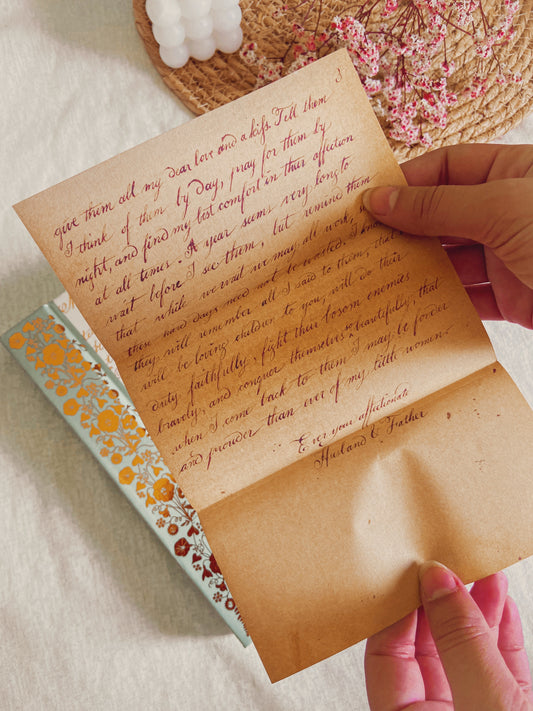 3
give them all my dear love and a kiss. Tell them
I think of them by Day, pray for them by
night, and find my best comfort in their affection
at all times. A year seems very long to
wait before I see them, but remind them
that while we wait we may all work,
these hard days need not be wasted. I know
they will remember all I said to them, that
will be loving children to you, will do their
duty faithfully, fight their bosom enemies
bravely, and conquer themselves so beautifully, that
when I come back to them I may be fonder
and prouder than ever of my little women.
Ever your affectionate
Husband & Father